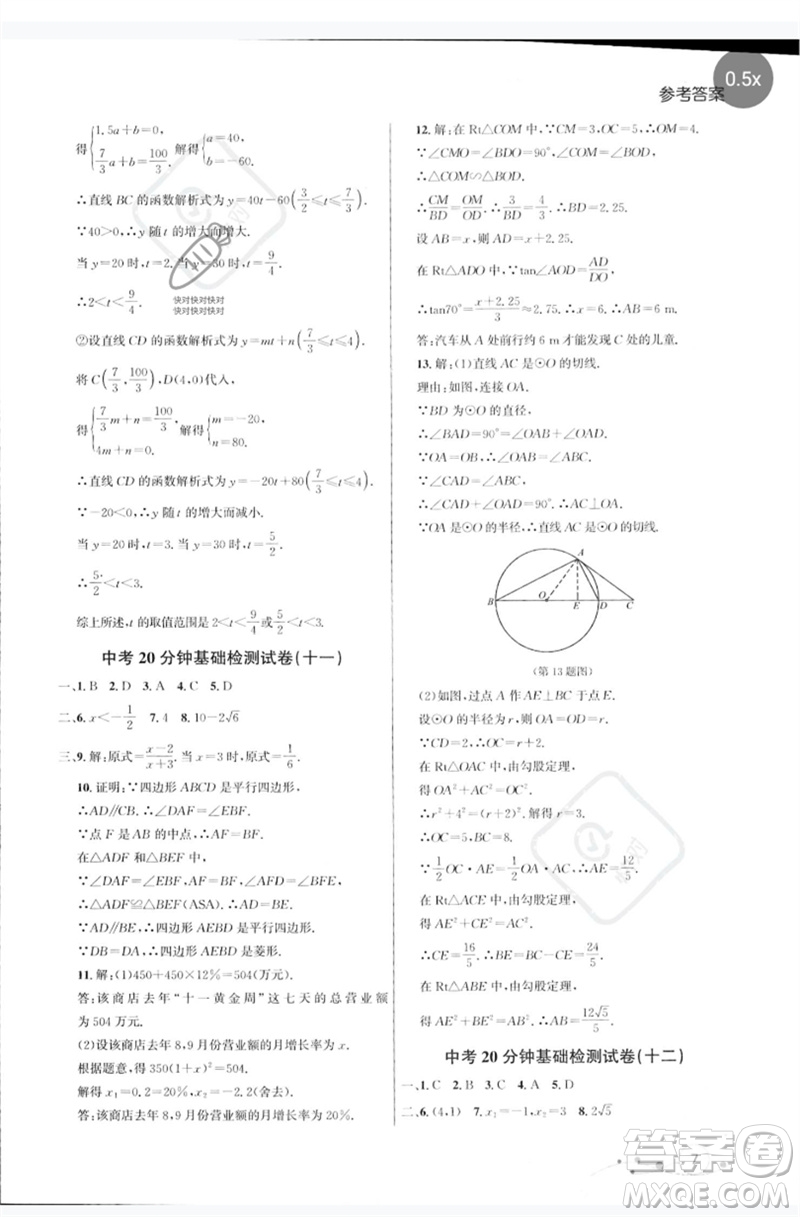 0.5x
参考答案
得{1.5a+b=0, 7/3a+b=100/3. 解得{a=40, b=-60.
∴直线 BC 的函数解析式为 y=40t-60(3/2≤t≤7/3).
∵40>0,∴y 随 t 的增大而增大.
当 y=20 时,t=2.当 y=30 时,t=9/4.
∴2<t<9/4.
快对快对快对
快对快对快对
②设直线 CD 的函数解析式为 y=mt+n(7/3≤t≤4).
将 C(7/3,100/3),D(4,0)代入,
得{7/3m+n=100/3, 4m+n=0. 解得{m=-20, n=80.
∴直线 CD 的函数解析式为 y=-20t+80(7/3≤t≤4).
∵-20<0,∴y 随 t 的增大而减小.
当 y=20 时,t=3.当 y=30 时,t=5/2.
∴5/2<t<3.
综上所述,t 的取值范围是 2<t<9/4或5/2<t<3.
中考 20 分钟基础检测试卷(十一)
一、1.B 2.D 3.A 4.C 5.D
二、6.x<-1/2 7.4 8.10-2√6
三、9.解:原式=x-2/x+3.当 x=3 时,原式=1/6.
10.证明:∵四边形 ABCD 是平行四边形,
∴AD∥CB.∴∠DAF=∠EBF.
∵点 F 是 AB 的中点,∴AF=BF.
在△ADF 和△BEF 中,
∵∠DAF=∠EBF,AF=BF,∠AFD=∠BFE,
∴△ADF≌△BEF(ASA).∴AD=BE.
∵AD∥BE,∴四边形 AEBD 是平行四边形.
∵DB=DA,∴四边形 AEBD 是菱形.
11.解:(1)450+450×12%=504(万元).
答:该商店去年“十一黄金周”这七天的总营业额
为 504 万元.
(2)设该商店去年 8,9 月份营业额的月增长率为 x.
根据题意,得 350(1+x)²=504.
解得 x₁=0.2=20%,x₂=-2.2(舍去).
答:该商店去年 8,9 月份营业额的月增长率为 20%.
12.解:在 Rt△COM 中,∵CM=3,OC=5,∴OM=4.
∵∠CMO=∠BDO=90°,∠COM=∠BOD,
∴△COM∽△BOD.
∴CM/BD=OM/OD.∴3/BD=4/3.∴BD=2.25.
设 AB=x,则 AD=x+2.25.
在 Rt△ADO 中,∵tan∠AOD=AD/DO,
∴tan70°=x+2.25/3≈2.75.∴x≈6.
答:汽车从 A 处前行约 6 m 才能发现 C 处的儿童.
13.解:(1)直线 AC 是⊙O 的切线.
理由:如图,连接 OA.
∵BD 为⊙O 的直径,
∴∠BAD=90°=∠OAB+∠OAD.
∵OA=OB,∴∠OAB=∠ABC.
∵∠CAD=∠ABC,∴∠CAD=∠OAB.
∴∠CAD+∠OAD=90°=∠OAC.∴AC⊥OA.
∵OA 是⊙O 的半径,∴直线 AC 是⊙O 的切线.
A
B O E D C
(第 13 题图)
(2)如图,过点 A 作 AE⊥BC 于点 E.
设⊙O 的半径为 r,则 OA=OD=r.
∵CD=2,∴OC=r+2.
在 Rt△OAC 中,由勾股定理,
得 OA²+AC²=OC².
∴r²+4²=(r+2)².解得 r=3.
∴OC=5,BC=8.
∵1/2OC·AE=1/2OA·AC,∴AE=12/5.
在 Rt△ACE 中,由勾股定理,
得 AE²+CE²=AC².
∴CE=16/5.∴BE=BC-CE=24/5.
在 Rt△ABE 中,由勾股定理,
得 AE²+BE²=AB².∴AB=12√5/5.
中考 20 分钟基础检测试卷(十二)
一、1.C 2.B 3.C 4.A 5.D
二、6.(4,1) 7.x₁=-1,x₂=3 8.2√5
7
答案卷
MXQE.COM